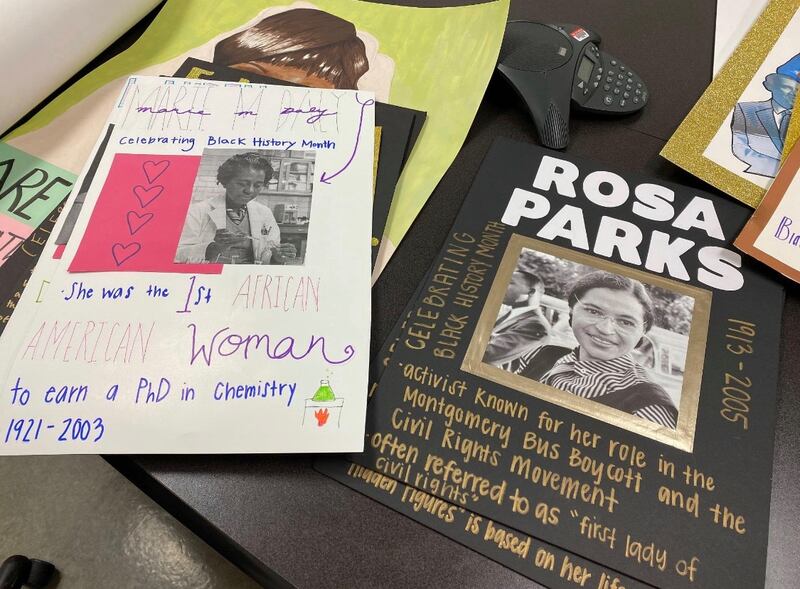 MARIE M DALEY
marie m daley
Celebrating Black History Month
She was the 1st AFRICAN
AMERICAN Woman
to earn a PhD in Chemistry
1921-2003
ROSA
PARKS
CELEBRATING
BLACK HISTORY MONTH
1913-2005
·activist known for her role in the
Montgomery Bus Boycott and the
Civil Rights Movement
·often referred to as "first lady of
civil rights"
hidden figures" is based on her life
ARE